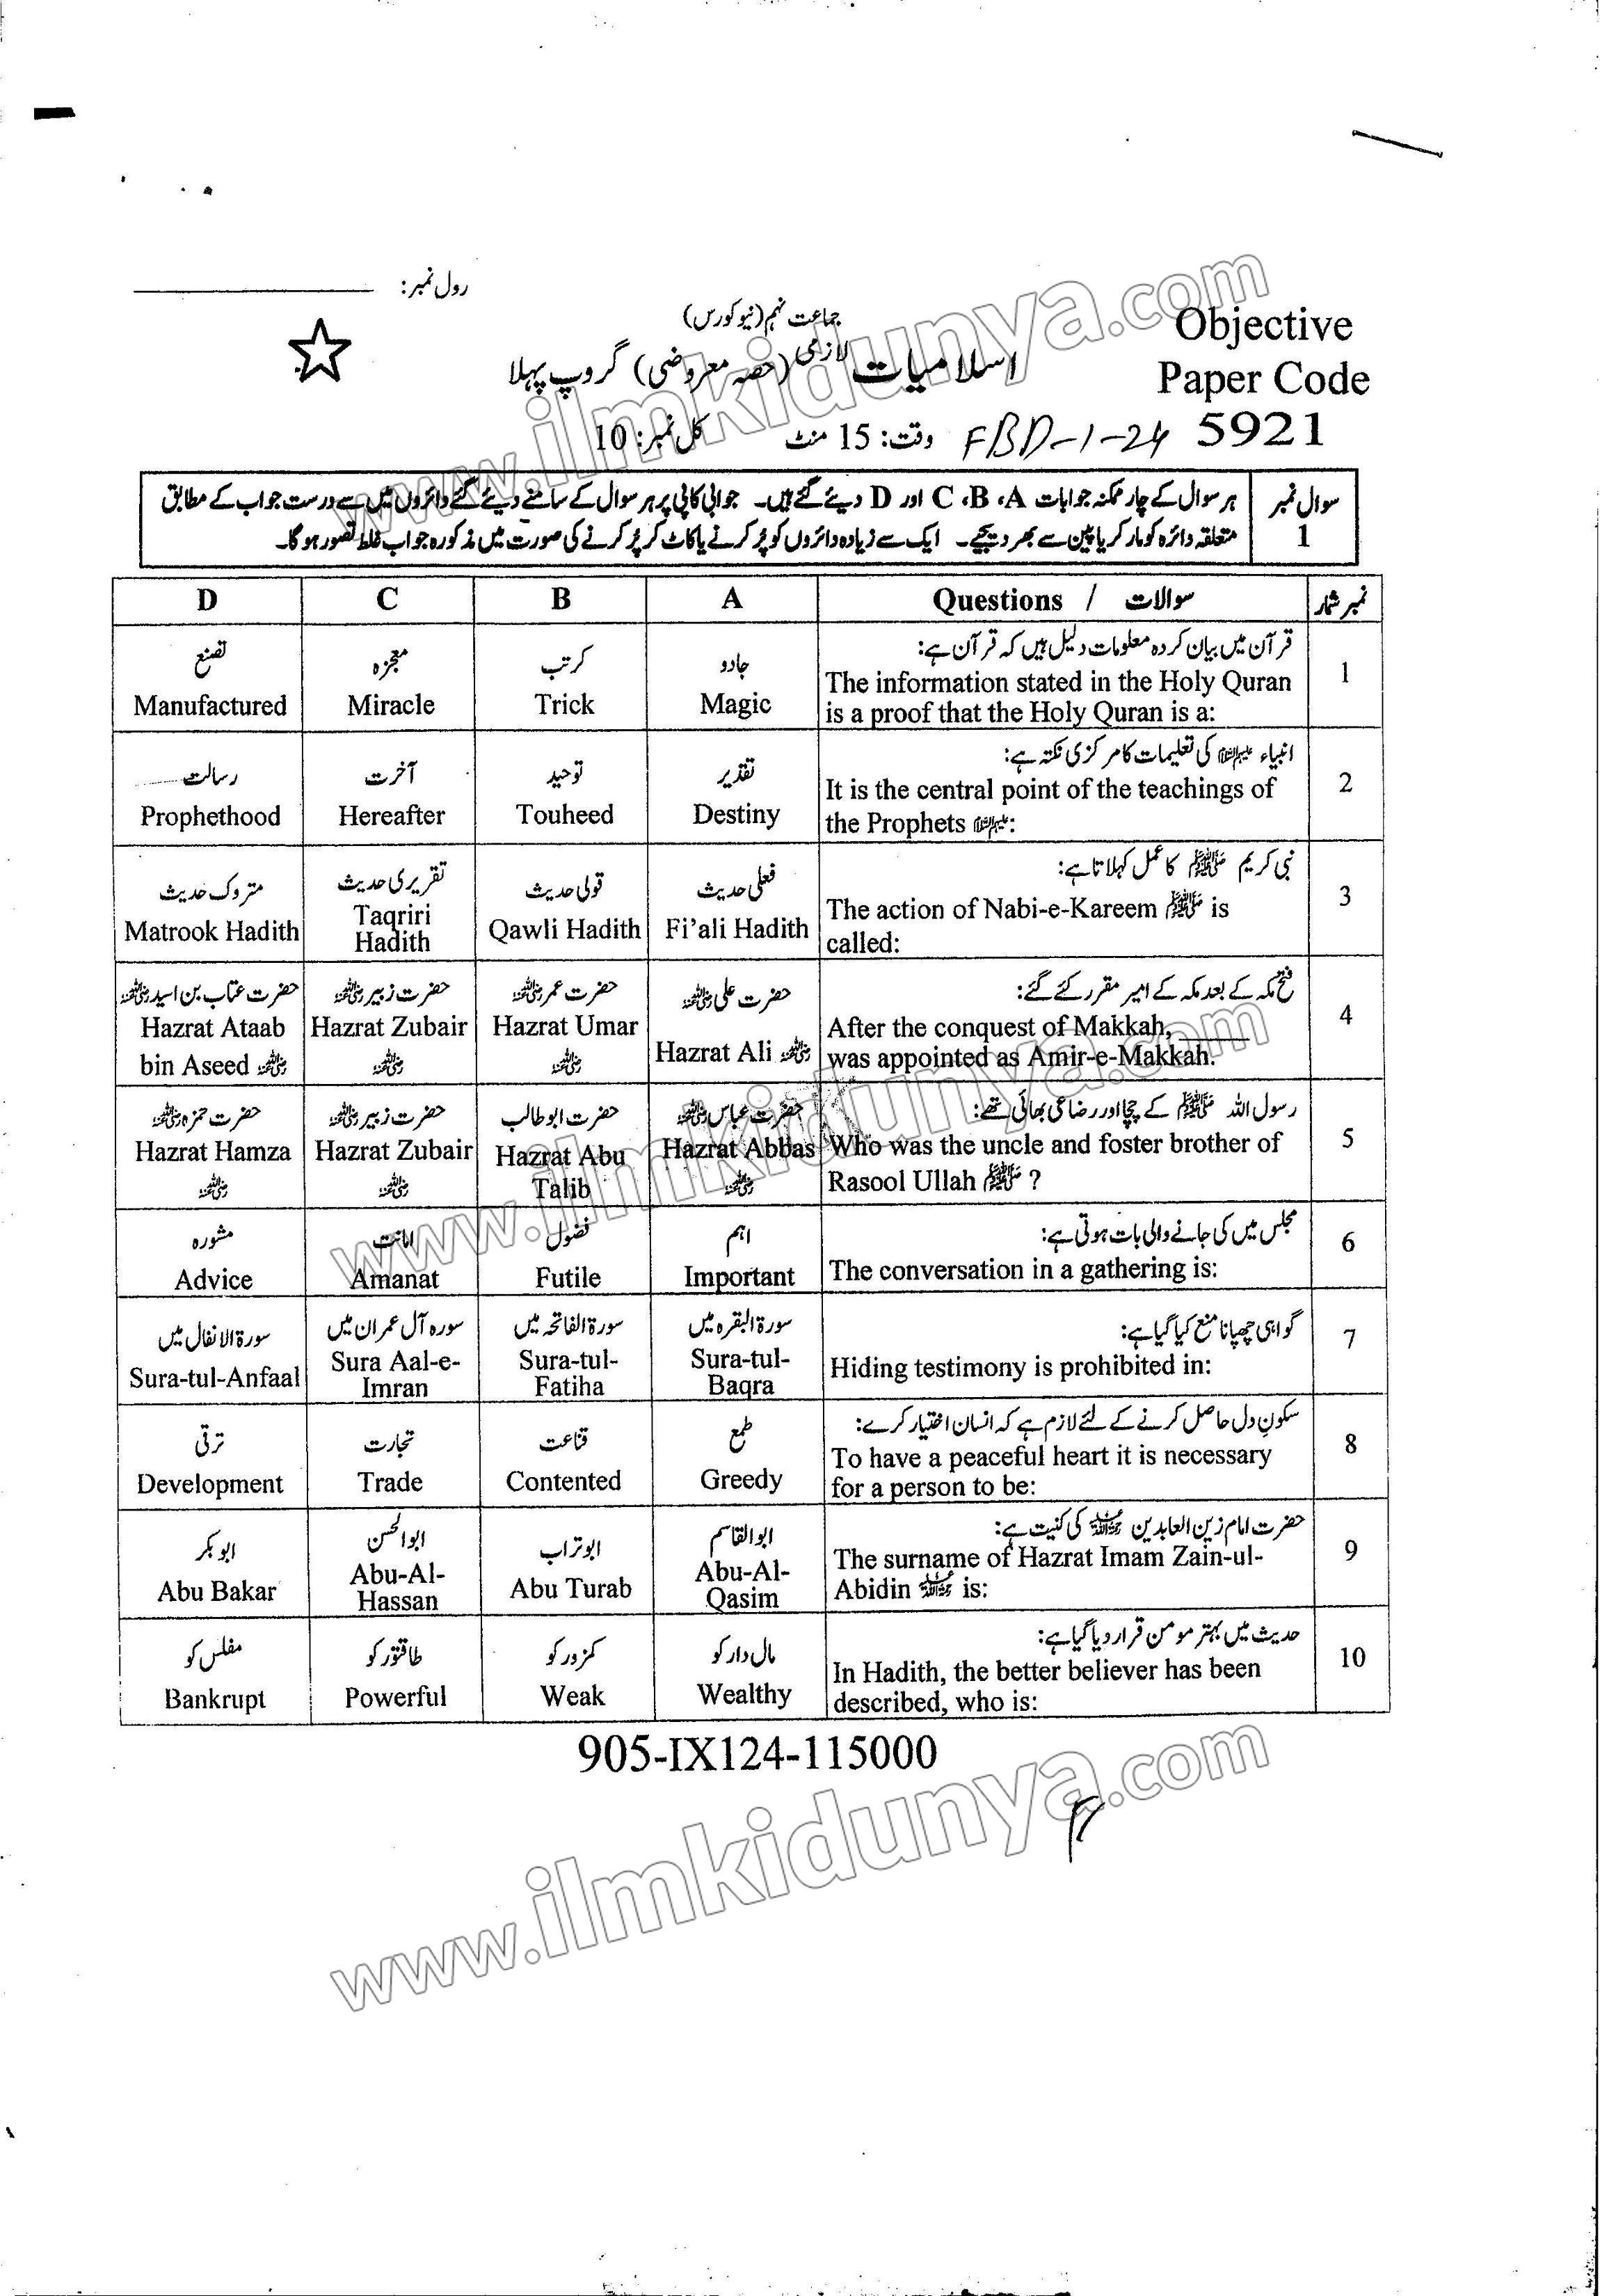 رول نمبر: ____________
جماعت نہم (نیو کورس)
اسلامیات لازمی (حصہ معروضی) گروپ پہلا
وقت: 15 منٹ کل نمبر: 10
Objective
Paper Code
5921
FBD-1-24
سوال نمبر 1
ہر سوال کے چار ممکنہ جوابات A، B، C اور D دیئے گئے ہیں۔ جوابی کاپی پر ہر سوال کے سامنے دیئے گئے دائروں میں سے درست جواب کے مطابق
متعلقہ دائرہ کو مارکر یا پین سے بھر دیجیے۔ ایک سے زیادہ دائروں کو پُر کرنے یا کاٹ کر پُر کرنے کی صورت میں مذکورہ جواب غلط تصور ہوگا۔
D C B A Questions / سوالات نمبر شمار
1
قرآن میں بیان کردہ معلومات دلیل ہیں کہ قرآن ہے:
The information stated in the Holy Quran
is a proof that the Holy Quran is a:
جادو
Magic
کرتب
Trick
معجزہ
Miracle
تصنع
Manufactured
2
انبیاء علیہم السلام کی تعلیمات کا مرکزی نکتہ ہے:
It is the central point of the teachings of
the Prophets علیہم السلام:
تقدیر
Destiny
توحید
Touheed
آخرت
Hereafter
رسالت
Prophethood
3
نبی کریم ﷺ کا عمل کہلاتا ہے:
The action of Nabi-e-Kareem ﷺ is
called:
فعلی حدیث
Fi’ali Hadith
قولی حدیث
Qawli Hadith
تقریری حدیث
Taqriri
Hadith
متروک حدیث
Matrook Hadith
4
فتح مکہ کے بعد مکہ کے امیر مقرر کئے گئے:
After the conquest of Makkah, ______
was appointed as Amir-e-Makkah.
حضرت علی رضی اللہ عنہ
Hazrat Ali رضی اللہ عنہ
حضرت عمر رضی اللہ عنہ
Hazrat Umar
رضی اللہ عنہ
حضرت زبیر رضی اللہ عنہ
Hazrat Zubair
رضی اللہ عنہ
حضرت عتاب بن اسید رضی اللہ عنہ
Hazrat Ataab
bin Aseed رضی اللہ عنہ
5
رسول اللہ ﷺ کے چچا اور رضاعی بھائی تھے:
Who was the uncle and foster brother of
Rasool Ullah ﷺ ?
حضرت عباس رضی اللہ عنہ
Hazrat Abbas
رضی اللہ عنہ
حضرت ابو طالب
Hazrat Abu
Talib
حضرت زبیر رضی اللہ عنہ
Hazrat Zubair
رضی اللہ عنہ
حضرت حمزہ رضی اللہ عنہ
Hazrat Hamza
رضی اللہ عنہ
6
مجلس میں کی جانے والی بات ہوتی ہے:
The conversation in a gathering is:
اہم
Important
فضول
Futile
امانت
Amanat
مشورہ
Advice
7
گواہی چھپانا منع کیا گیا ہے:
Hiding testimony is prohibited in:
سورۃ البقرہ میں
Sura-tul-
Baqra
سورۃ الفاتحہ میں
Sura-tul-
Fatiha
سورہ آل عمران میں
Sura Aal-e-
Imran
سورۃ الانفال میں
Sura-tul-Anfaal
8
سکونِ دل حاصل کرنے کے لئے لازم ہے کہ انسان اختیار کرے:
To have a peaceful heart it is necessary
for a person to be:
طمع
Greedy
قناعت
Contented
تجارت
Trade
ترقی
Development
9
حضرت امام زین العابدین کی کنیت ہے:
The surname of Hazrat Imam Zain-ul-
Abidin is:
ابوالقاسم
Abu-Al-
Qasim
ابوتراب
Abu Turab
ابوالحسن
Abu-Al-
Hassan
ابوبکر
Abu Bakar
10
حدیث میں بہتر مومن قرار دیا گیا ہے:
In Hadith, the better believer has been
described, who is:
مال دار کو
Wealthy
کمزور کو
Weak
طاقتور کو
Powerful
مفلس کو
Bankrupt
905-IX124-115000
www.ilmkidunya.com
www.ilmkidunya.com
www.ilmkidunya.com